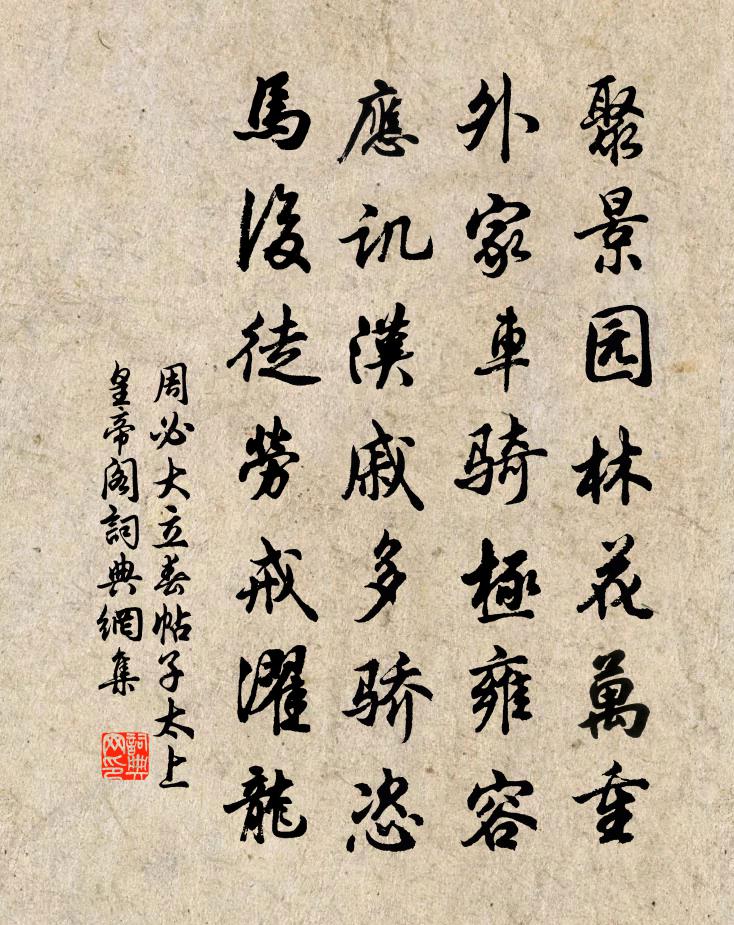 聚景园林花萬重
外家車騎極雍容
應讥漢戚多骄恣
馬後徒勞戒濯龍
周必大立春帖子太上
皇帝阁詞典網集
詞典网印